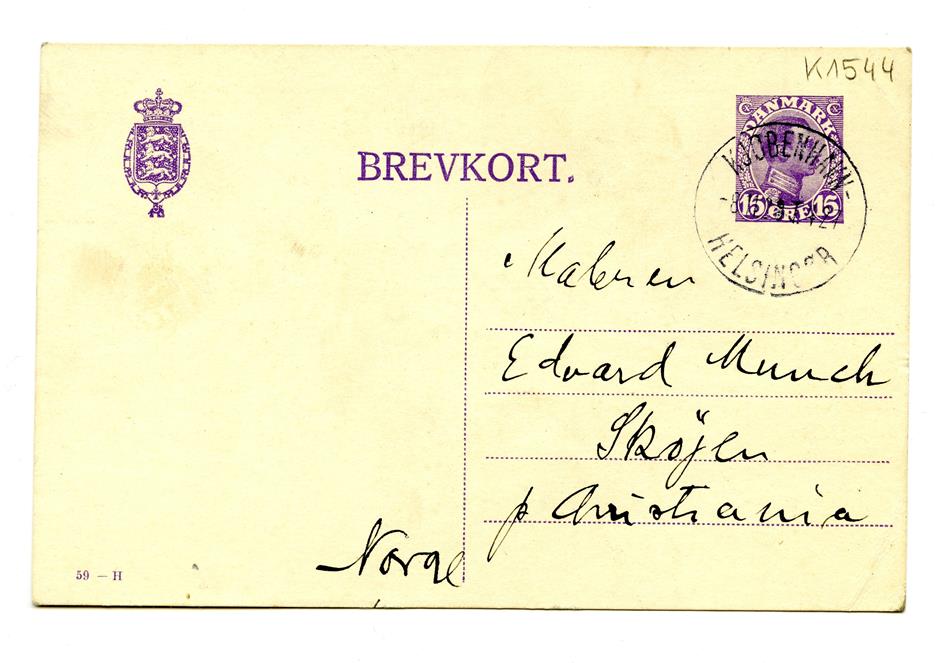 K1544
BREVKORT.
DANMARK
15 ØRE 15
KJØBENHAVN-
HELSINGØR
Maleren
Edvard Munch
Sköjen
p Christiania
Norge
59 — H